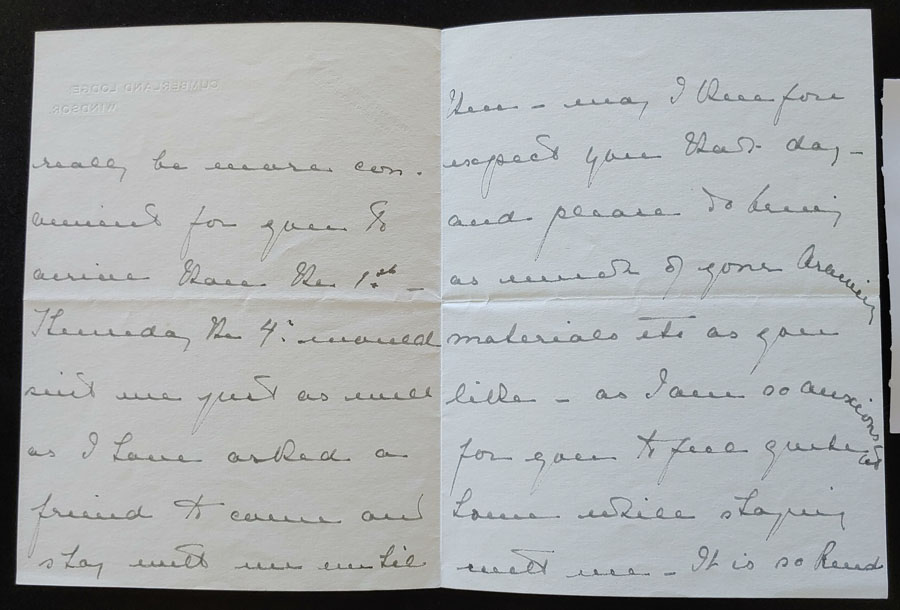 CUMBERLAND LODGE
WINDSOR
really be more con-
venient for you to
arrive than the 1st –
Thursday the 4th would
suit me just as well
as I have asked a
friend to come and
stay with me until
then – may I therefore
expect you that day –
and please do bring
as much of your drawing
materials etc as you
like – as I am so anxious
for you to feel quite at
home while staying
with me – It is so kind